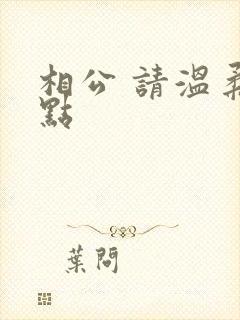 相公 請溫柔
點
葉問